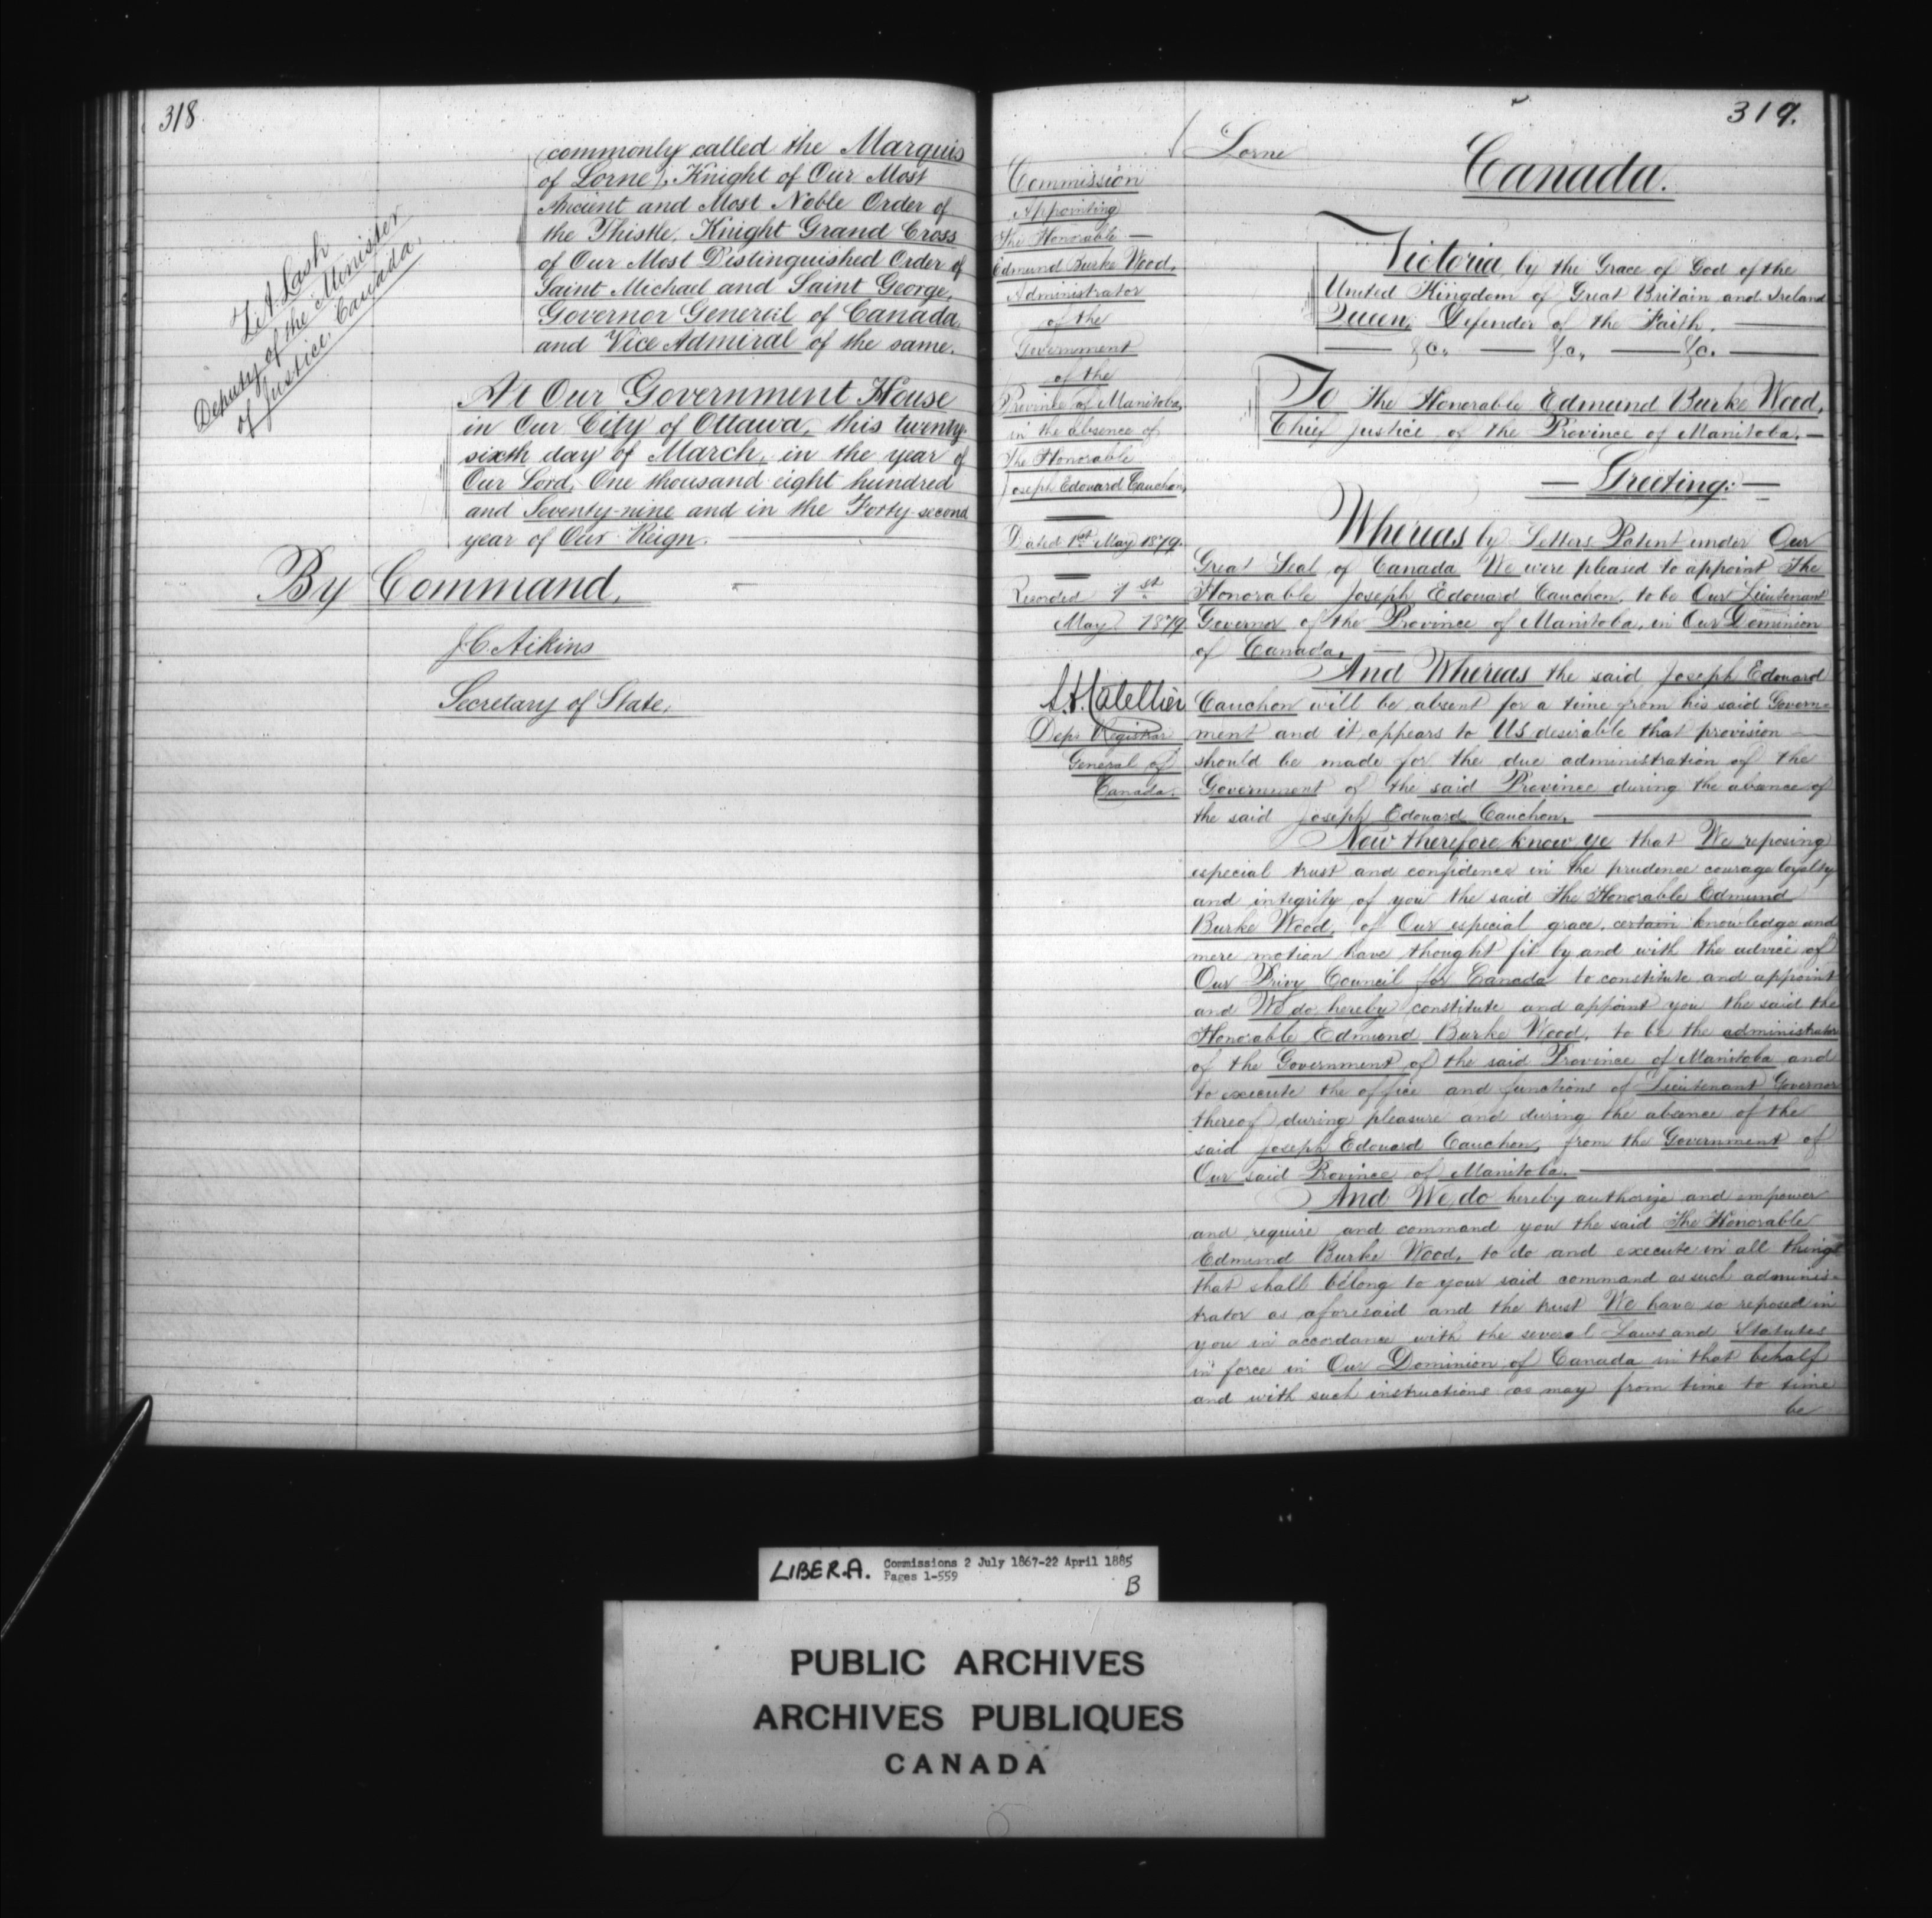 318
Z. A. Lash
Deputy of the Minister
of Justice, Canada.
(commonly called the Marquis
of Lorne), Knight of Our Most
Ancient and Most Noble Order of
the Thistle, Knight Grand Cross
of Our Most Distinguished Order of
Saint Michael and Saint George,
Governor General of Canada
and Vice Admiral of the same.
At Our Government House
in Our City of Ottawa, this twenty-
sixth day of March, in the year of
Our Lord, One thousand eight hundred
and Seventy-nine and in the Forty-second
year of Our Reign.
By Command,
J.C. Aikins
Secretary of State.
319.
Lorne
Canada.
Commission
Appointing
The Honorable
Edmund Burke Wood,
Administrator
of the
Government
of the
Province of Manitoba,
in the absence of
The Honorable
Joseph Edouard Cauchon,
Dated 1st May 1879.
Recorded 1st
May 1879
Depy Registrar
General of
Canada.
Victoria, by the Grace of God of the
United Kingdom of Great Britain and Ireland
Queen, Defender of the Faith.
&c. &c. &c.
To The Honorable Edmund Burke Wood,
Chief Justice of the Province of Manitoba.
Greeting:
Whereas by Letters Patent under Our
Great Seal of Canada We were pleased to appoint The
Honorable Joseph Edouard Cauchon, to be Our Lieutenant
Governor of the Province of Manitoba, in Our Dominion
of Canada.
And Whereas the said Joseph Edouard
Cauchon will be absent for a time from his said Govern-
ment and it appears to Us desirable that provision
should be made for the due administration of the
Government of the said Province during the absence of
the said Joseph Edouard Cauchon.
Now therefore know ye that We reposing
especial trust and confidence in the prudence courage loyalty
and integrity of you the said The Honorable Edmund
Burke Wood, of Our especial grace, certain knowledge and
mere motion have thought fit by and with the advice of
Our Privy Council for Canada to constitute and appoint
and We do hereby constitute and appoint you the said the
Honorable Edmund Burke Wood, to be the administrator
of the Government of the said Province of Manitoba and
to execute the office and functions of Lieutenant Governor
thereof during pleasure and during the absence of the
said Joseph Edouard Cauchon, from the Government of
Our said Province of Manitoba.
And We do hereby authorize and empower
and require and command you the said The Honorable
Edmund Burke Wood, to do and execute in all things
that shall belong to your said command as such adminis-
trator as aforesaid and the trust We have so reposed in
you in accordance with the several Laws and Statutes
in force in Our Dominion of Canada in that behalf
and with such instructions as may from time to time
be
LIBER.A. Commissions 2 July 1867-22 April 1885
Pages 1-559
B
PUBLIC ARCHIVES
ARCHIVES PUBLIQUES
CANADA